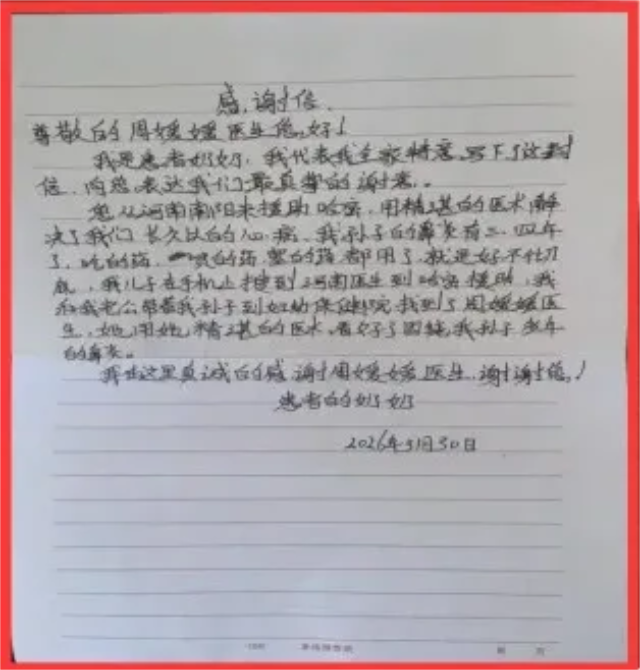 感谢信
尊敬的周媛媛医生您好！
我是患者奶奶，我代表我全家特意写下了这封
信，向您表达我们最真挚的谢意。
您从河南南阳来援助哈密，用精湛的医术解
决了我们长久以的心病，我孙子的鼻炎有三、四年
了，吃的药，喷的药，都用了，就是好不
，我儿子在手机上搜到河南医生到哈密援助，我
和我老公带着我孙子到妇幼保健院找到了周媛媛医
生，她用她精湛的医术，看好了困扰我孙子多年
的鼻炎。
我在这里真诚的感谢周媛媛医生，谢谢您！
患者的奶奶
2026年3月30日